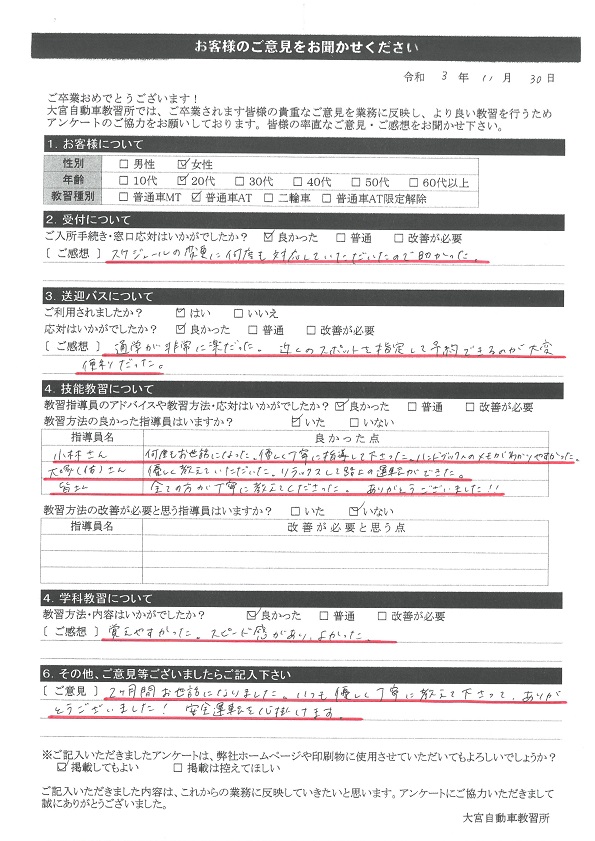 お客様のご意見をお聞かせください
令和 3 年 11 月 30 日
ご卒業おめでとうございます！
大宮自動車教習所では、ご卒業されます皆様の貴重なご意見を業務に反映し、より良い教習を行うため
アンケートのご協力をお願いしております。皆様の率直なご意見・ご感想をお聞かせ下さい。
1. お客様について
性別 □ 男性 ☑ 女性
年齢 □ 10代 ☑ 20代 □ 30代 □ 40代 □ 50代 □ 60代以上
教習種別 □ 普通車MT ☑ 普通車AT □ 二輪車 □ 普通車AT限定解除
2. 受付について
ご入所手続き・窓口応対はいかがでしたか？ ☑ 良かった □ 普通 □ 改善が必要
[ ご感想 ] スケジュールの変更に何度も対応していただいたので助かった。
3. 送迎バスについて
ご利用されましたか？ ☑ はい □ いいえ
応対はいかがでしたか？ ☑ 良かった □ 普通 □ 改善が必要
[ ご感想 ] 通学が非常に楽だった。 近くのスポットを指定して予約できるのが大変
便利だった。
4. 技能教習について
教習指導員のアドバイスや教習方法・応対はいかがでしたか？ ☑ 良かった □ 普通 □ 改善が必要
教習方法の良かった指導員はいますか？ ☑ いた □ いない
指導員名 良かった点
小林さん 何度もお世話になった。優しく丁寧に指導して下さった。ハンドブックへのメモがわかりやすかった。
大野(佑)さん 優しく教えていただいた。リラックスして路上の運転ができた。
皆さん 全ての方が丁寧に教えてくださった。 ありがとうございました!!
教習方法の改善が必要と思う指導員はいますか？ □ いた ☑ いない
指導員名 改善が必要と思う点
4. 学科教習について
教習方法・内容はいかがでしたか？ ☑ 良かった □ 普通 □ 改善が必要
[ ご感想 ] 覚えやすかった。スピード感があり、よかった。
6. その他、ご意見等ございましたらご記入下さい
[ ご意見 ] 2ヶ月間お世話になりました。いつも優しく丁寧に教えて下さって、ありが
とうございました！ 安全運転を心掛けます。
※ご記入いただきましたアンケートは、弊社ホームページや印刷物に使用させていただいてもよろしいでしょうか？
☑ 掲載してもよい □ 掲載は控えてほしい
ご記入いただきました内容は、これからの業務に反映していきたいと思います。アンケートにご協力いただきまして
誠にありがとうございました。
大宮自動車教習所